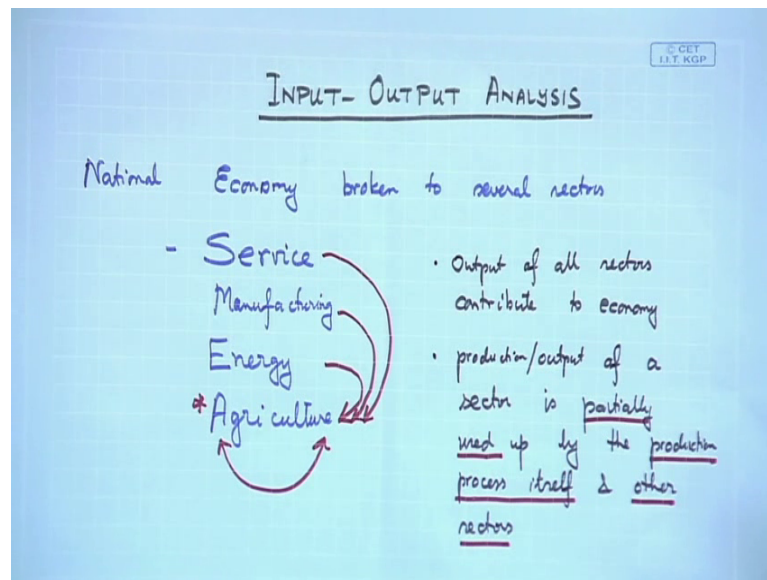 © CET
I.I.T. KGP
INPUT-OUTPUT ANALYSIS
National Economy broken to several sectors
- Service
Manufacturing
Energy
* Agriculture
• Output of all sectors
contribute to economy
• production/output of a
sector is partially
used up by the production
process itself & other
sectors